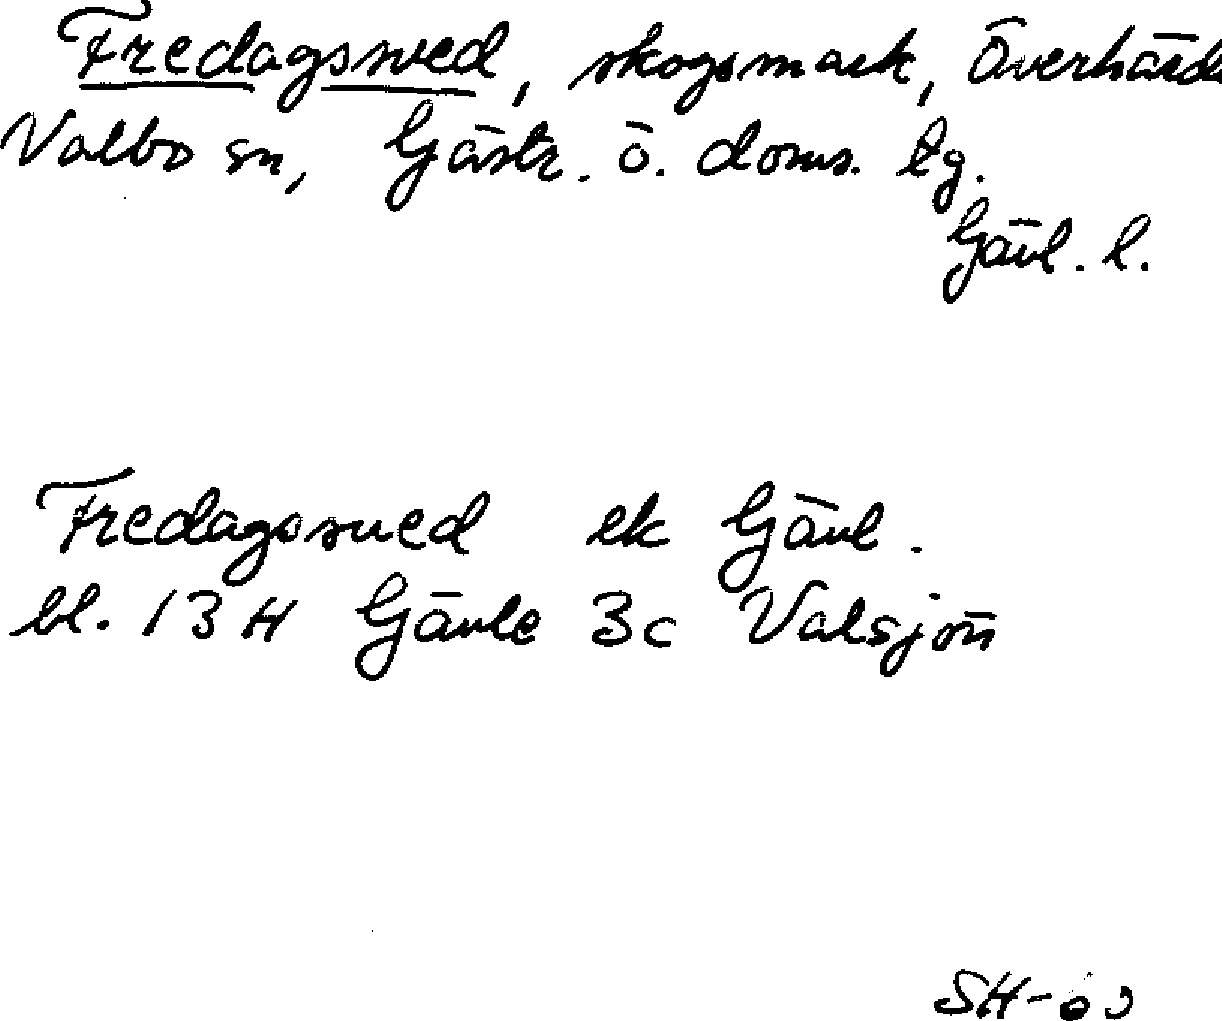 Fredagssved, skogsmark, Överhärde
Valbo sn, Gästr. ö. doms. lg.
Gävl. l.
Fredagssved ek Gävl.
bl. 13 H Gävle 3c Valsjön